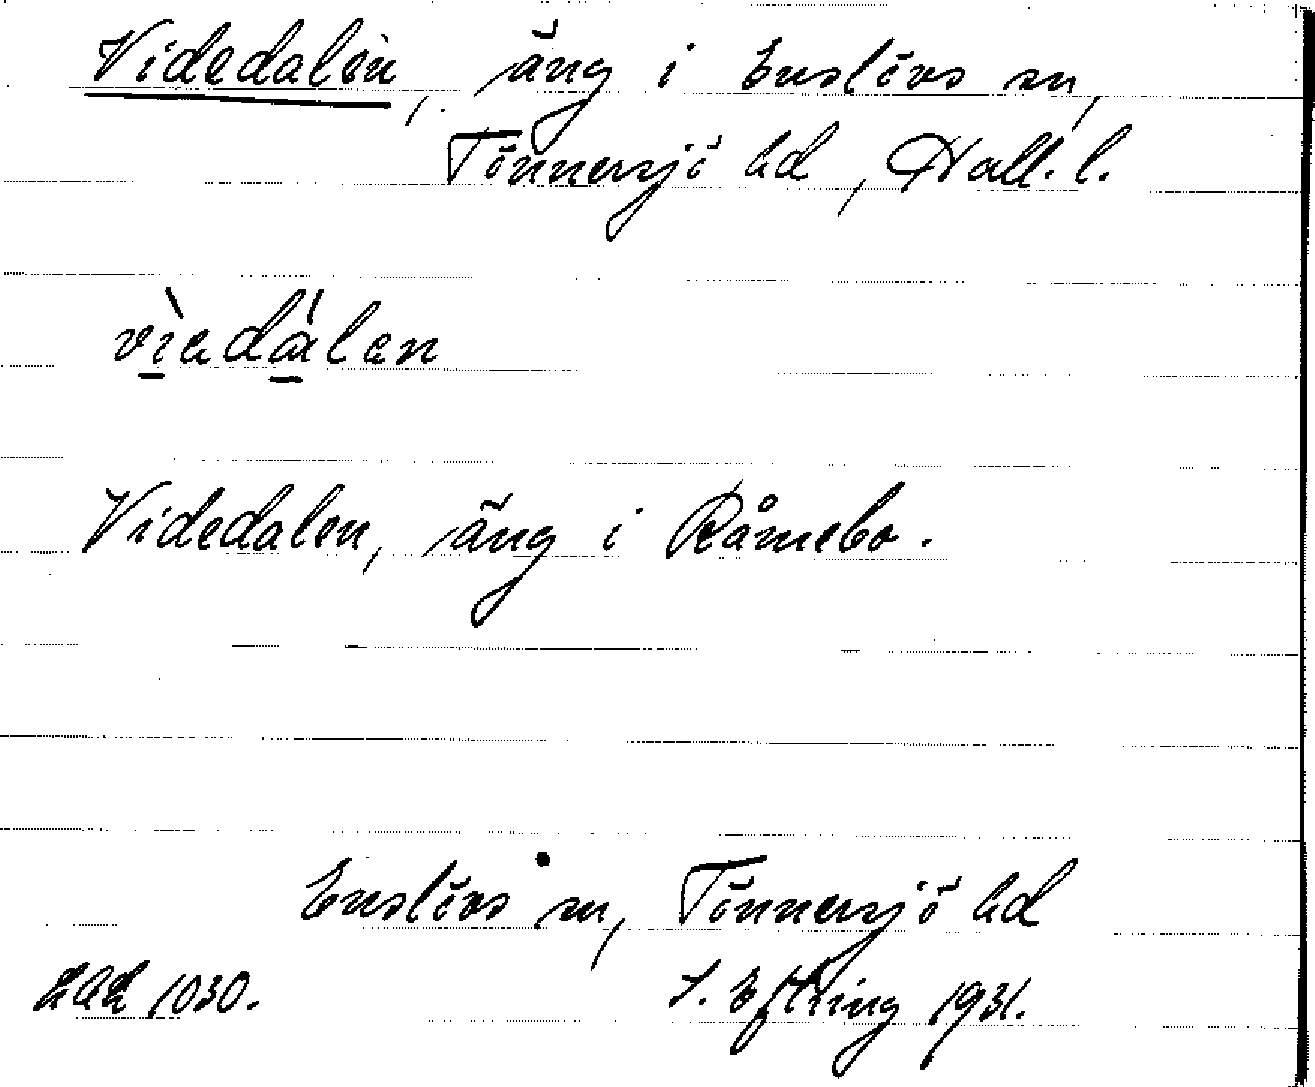 Videdalen, äng i Enslövs sn,
Tönnersjö hd, Hall. l.
vìedálen
Videdalen, äng i Råmebo.
Enslövs sn, Tönnersjö hd
1030. S. Eftring 1931.